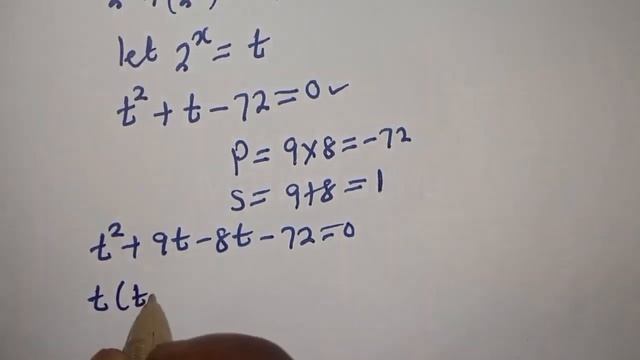 let 2^x = t
t² + t - 72 = 0 ✓
P = 9 × 8 = -72
S = 9 + 8 = 1
t² + 9t - 8t - 72 = 0
t (t